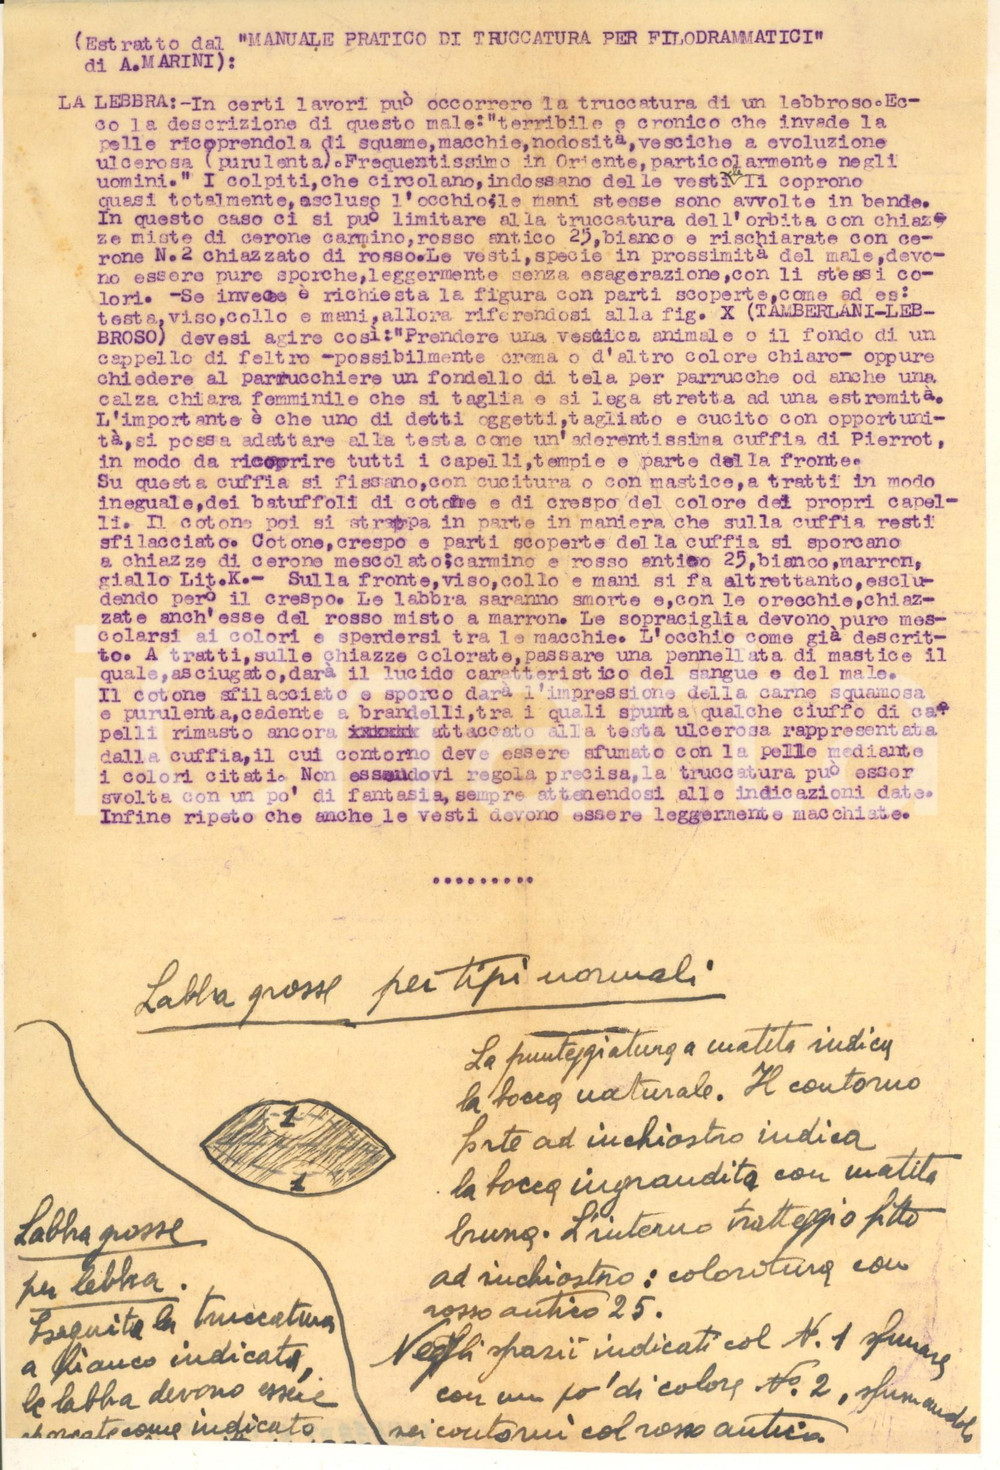 (Estratto dal "MANUALE PRATICO DI TRUCCATURA PER FILODRAMMATICI"
di A.MARINI):
LA LEBBRA:-In certi lavori può occorrere la truccatura di un lebbroso.Ec-
co la descrizione di questo male:"terribile e cronico che invade la
pelle ricoprendola di squame,macchie,nodosità,vesciche a evoluzione
ulcerosa (purulenta).Frequentissimo in Oriente,particolarmente negli
uomini." I colpiti,che circolano,indossano delle vesti che li coprono
quasi totalmente,escluso l'occhio;le mani stesse sono avvolte in bende.
In questo caso ci si può limitare alla truccatura dell'orbita con chiaz-
ze miste di cerone carmino,rosso antico 25,bianco e rischiarate con ce-
rone N.2 chiazzato di rosso.Le vesti,specie in prossimità del male,devo-
no essere pure sporche,leggermente senza esagerazione,con li stessi co-
lori. -Se invece è richiesta la figura con parti scoperte,come ad es:
testa,viso,collo e mani,allora riferendosi alla fig. X (TAMBERLANI-LEB-
BROSO) devesi agire così:"Prendere una vescica animale o il fondo di un
cappello di feltro -possibilmente crema o d'altro colore chiaro- oppure
chiedere al parrucchiere un fondello di tela per parrucche od anche una
calza chiara femminile che si taglia e si lega stretta ad una estremità.
L'importante è che uno di detti oggetti,tagliato e cucito con opportuni-
tà,si possa adattare alla testa come un'aderentissima cuffia di Pierrot,
in modo da ricoprire tutti i capelli,tempie e parte della fronte.
Su questa cuffia si fissano,con cucitura o con mastice,a tratti in modo
ineguale,dei batuffoli di cotone e di crespo del colore dei propri capel-
li. Il cotone poi si strappa in parte in maniera che sulla cuffia resti
sfilacciato. Cotone,crespo e parti scoperte della cuffia si sporcano
a chiazze di cerone mescolato;carmino e rosso antico 25,bianco,marron,
giallo Lit.K.- Sulla fronte,viso,collo e mani si fa altrettanto,esclu-
dendo però il crespo. Le labbra saranno smorte e,con le orecchie,chiaz-
zate anch'esse del rosso misto a marron. Le sopraciglia devono pure mes-
colarsi ai colori e sperdersi tra le macchie. L'occhio come già descrit-
to. A tratti,sulle chiazze colorate,passare una pennellata di mastice il
quale,asciugato,darà il lucido caratteristico del sangue e del male.
Il cotone sfilacciato e sporco darà l'impressione della carne squamosa
e purulenta,cadente a brandelli,tra i quali spunta qualche ciuffo di ca-
pelli rimasto ancora xxxxxx attaccato alla testa ulcerosa rappresentata
dalla cuffia,il cui contorno deve essere sfumato con la pelle mediante
i colori citati. Non essendovi regola precisa,la truccatura può esser
svolta con un po' di fantasia,sempre attenendosi alle indicazioni date.
Infine ripeto che anche le vesti devono essere leggermente macchiate.
.........
Labbra grosse per tipi normali
La punteggiatura a matita indica
la bocca naturale. Il contorno
forte ad inchiostro indica
la bocca ingrandita con matita
bruna. L'interno tratteggio fitto
ad inchiostro: coloritura con
rosso antico 25.
Negli spazii indicati col N. 1 sfumare
con un po' di colore No. 2, sfumandolo
nei contorni col rosso antico.
1
1
Labbra grosse
per lebbra.
Eseguita la truccatura
a fianco indicata,
le labbra devono essere
sporcate come indicato